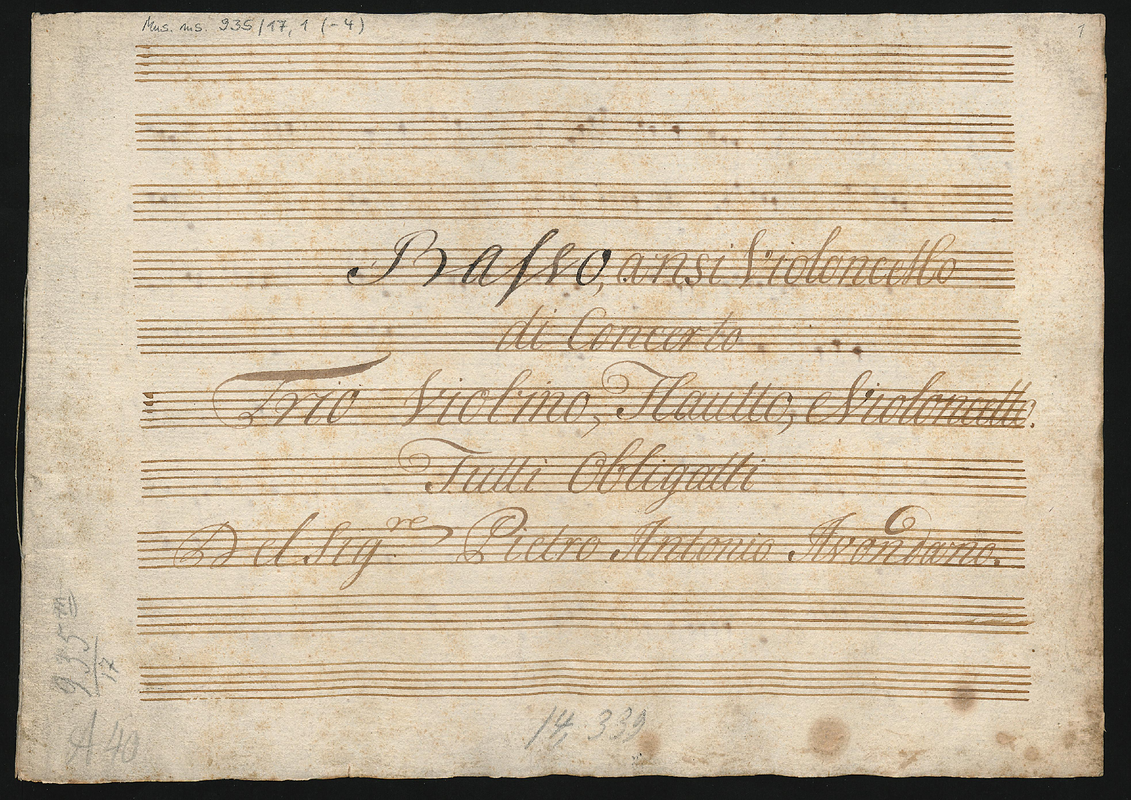 Mus. ms. 935/17, 1 (-4)
1
Basso, ansi Violoncello
di Concerto
Trio Violino, Flautto, e Violoncello.
Tutti Obligatti
Del Sig.re Pietro Antonio Avondano.
935 m
17
A 40
14, 339